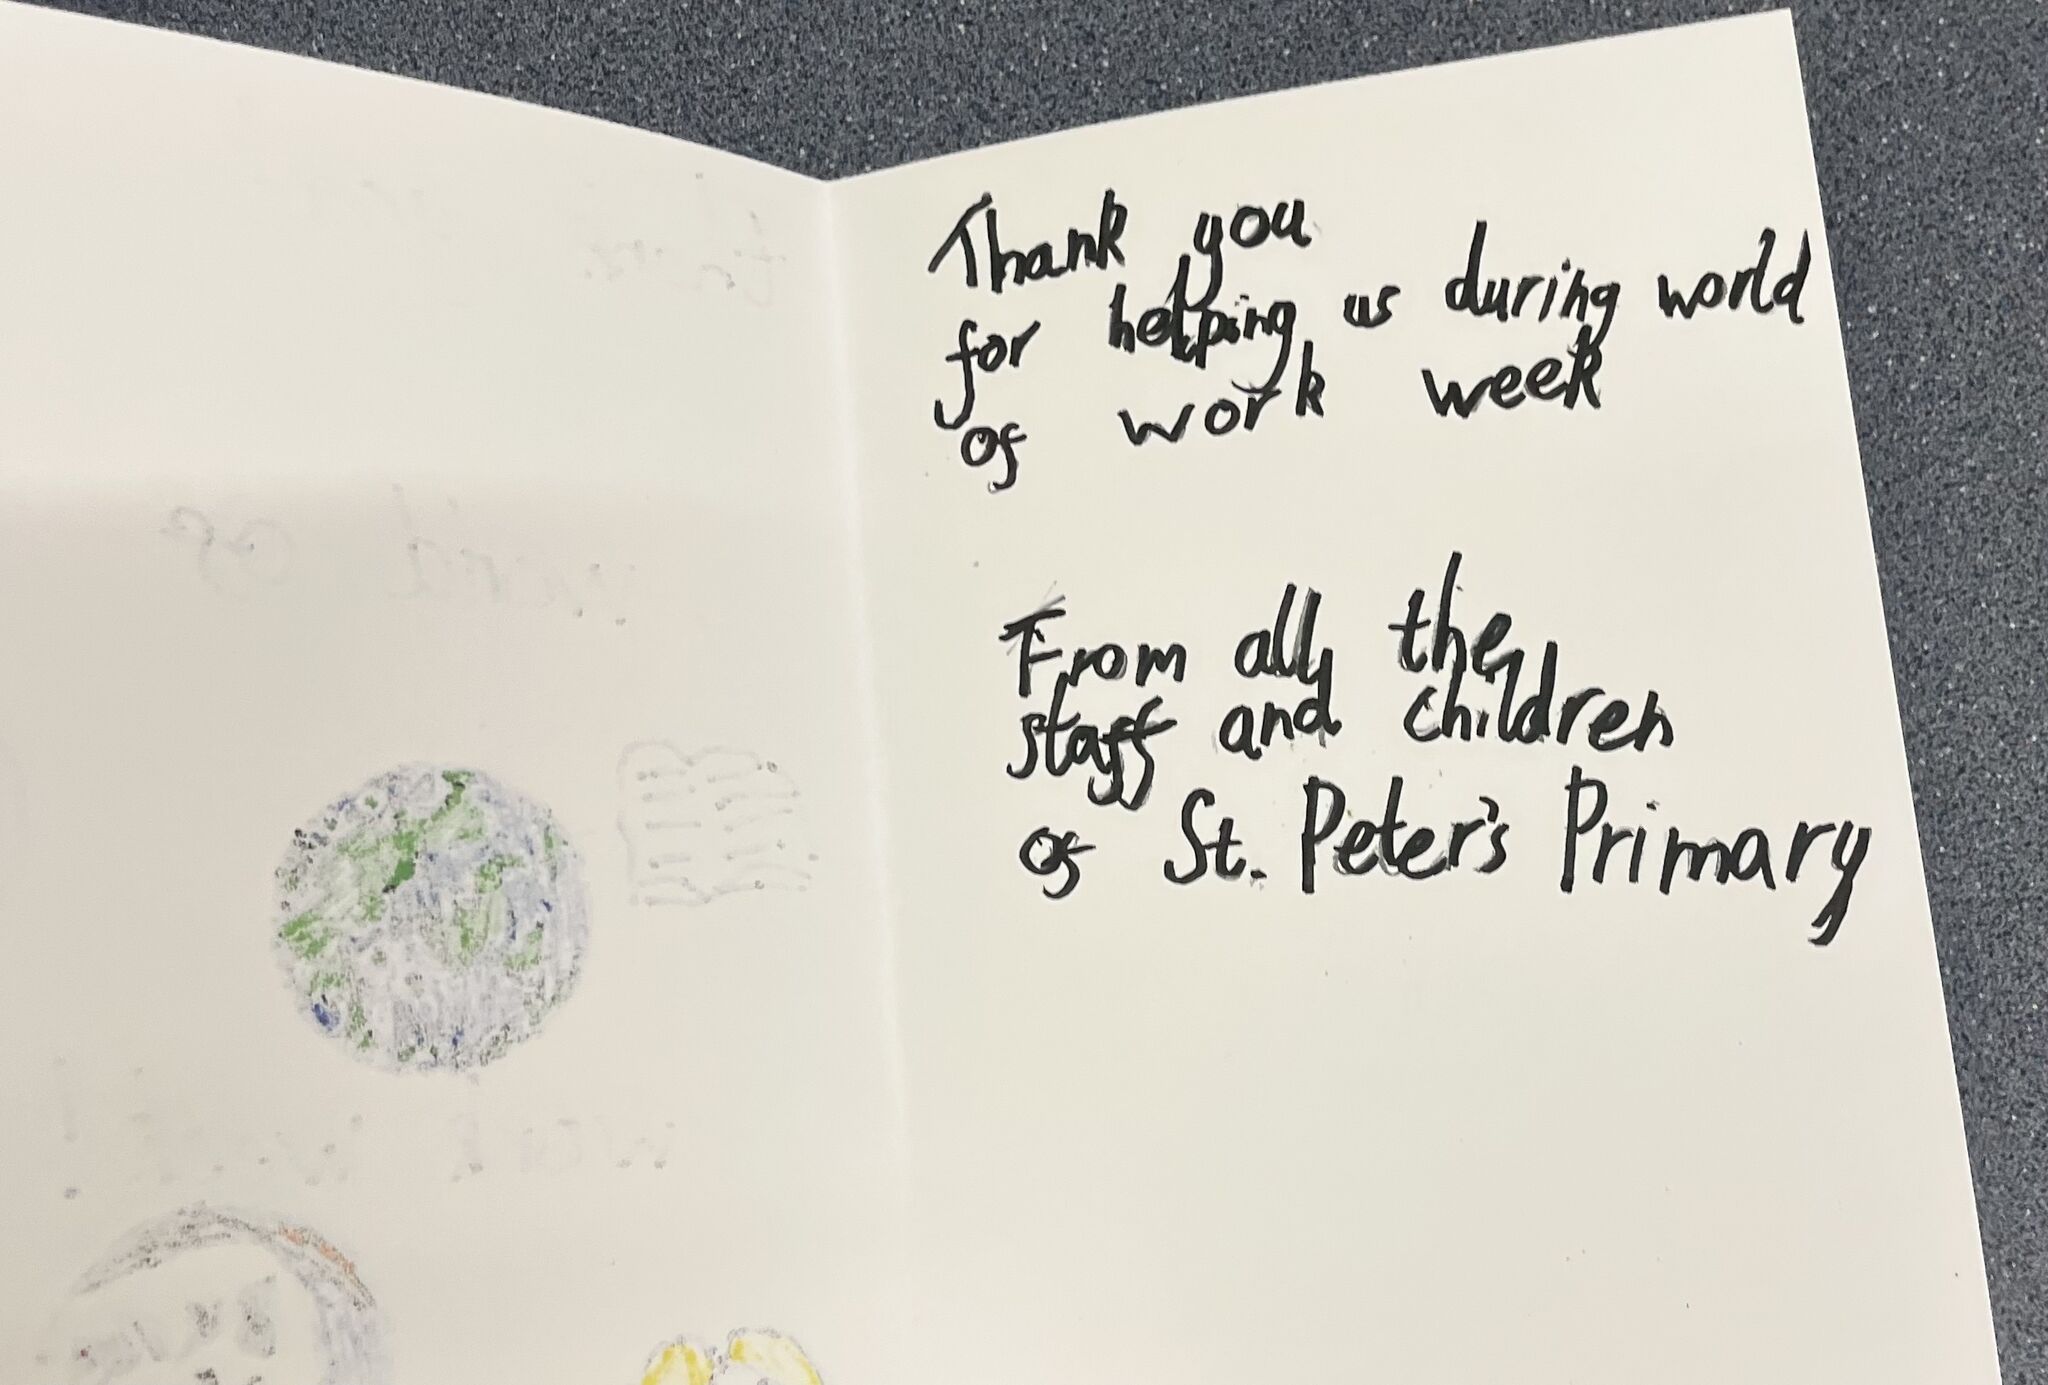 Thank you
for helping us during world
of work week
From all the
staff and children
of St. Peter's Primary